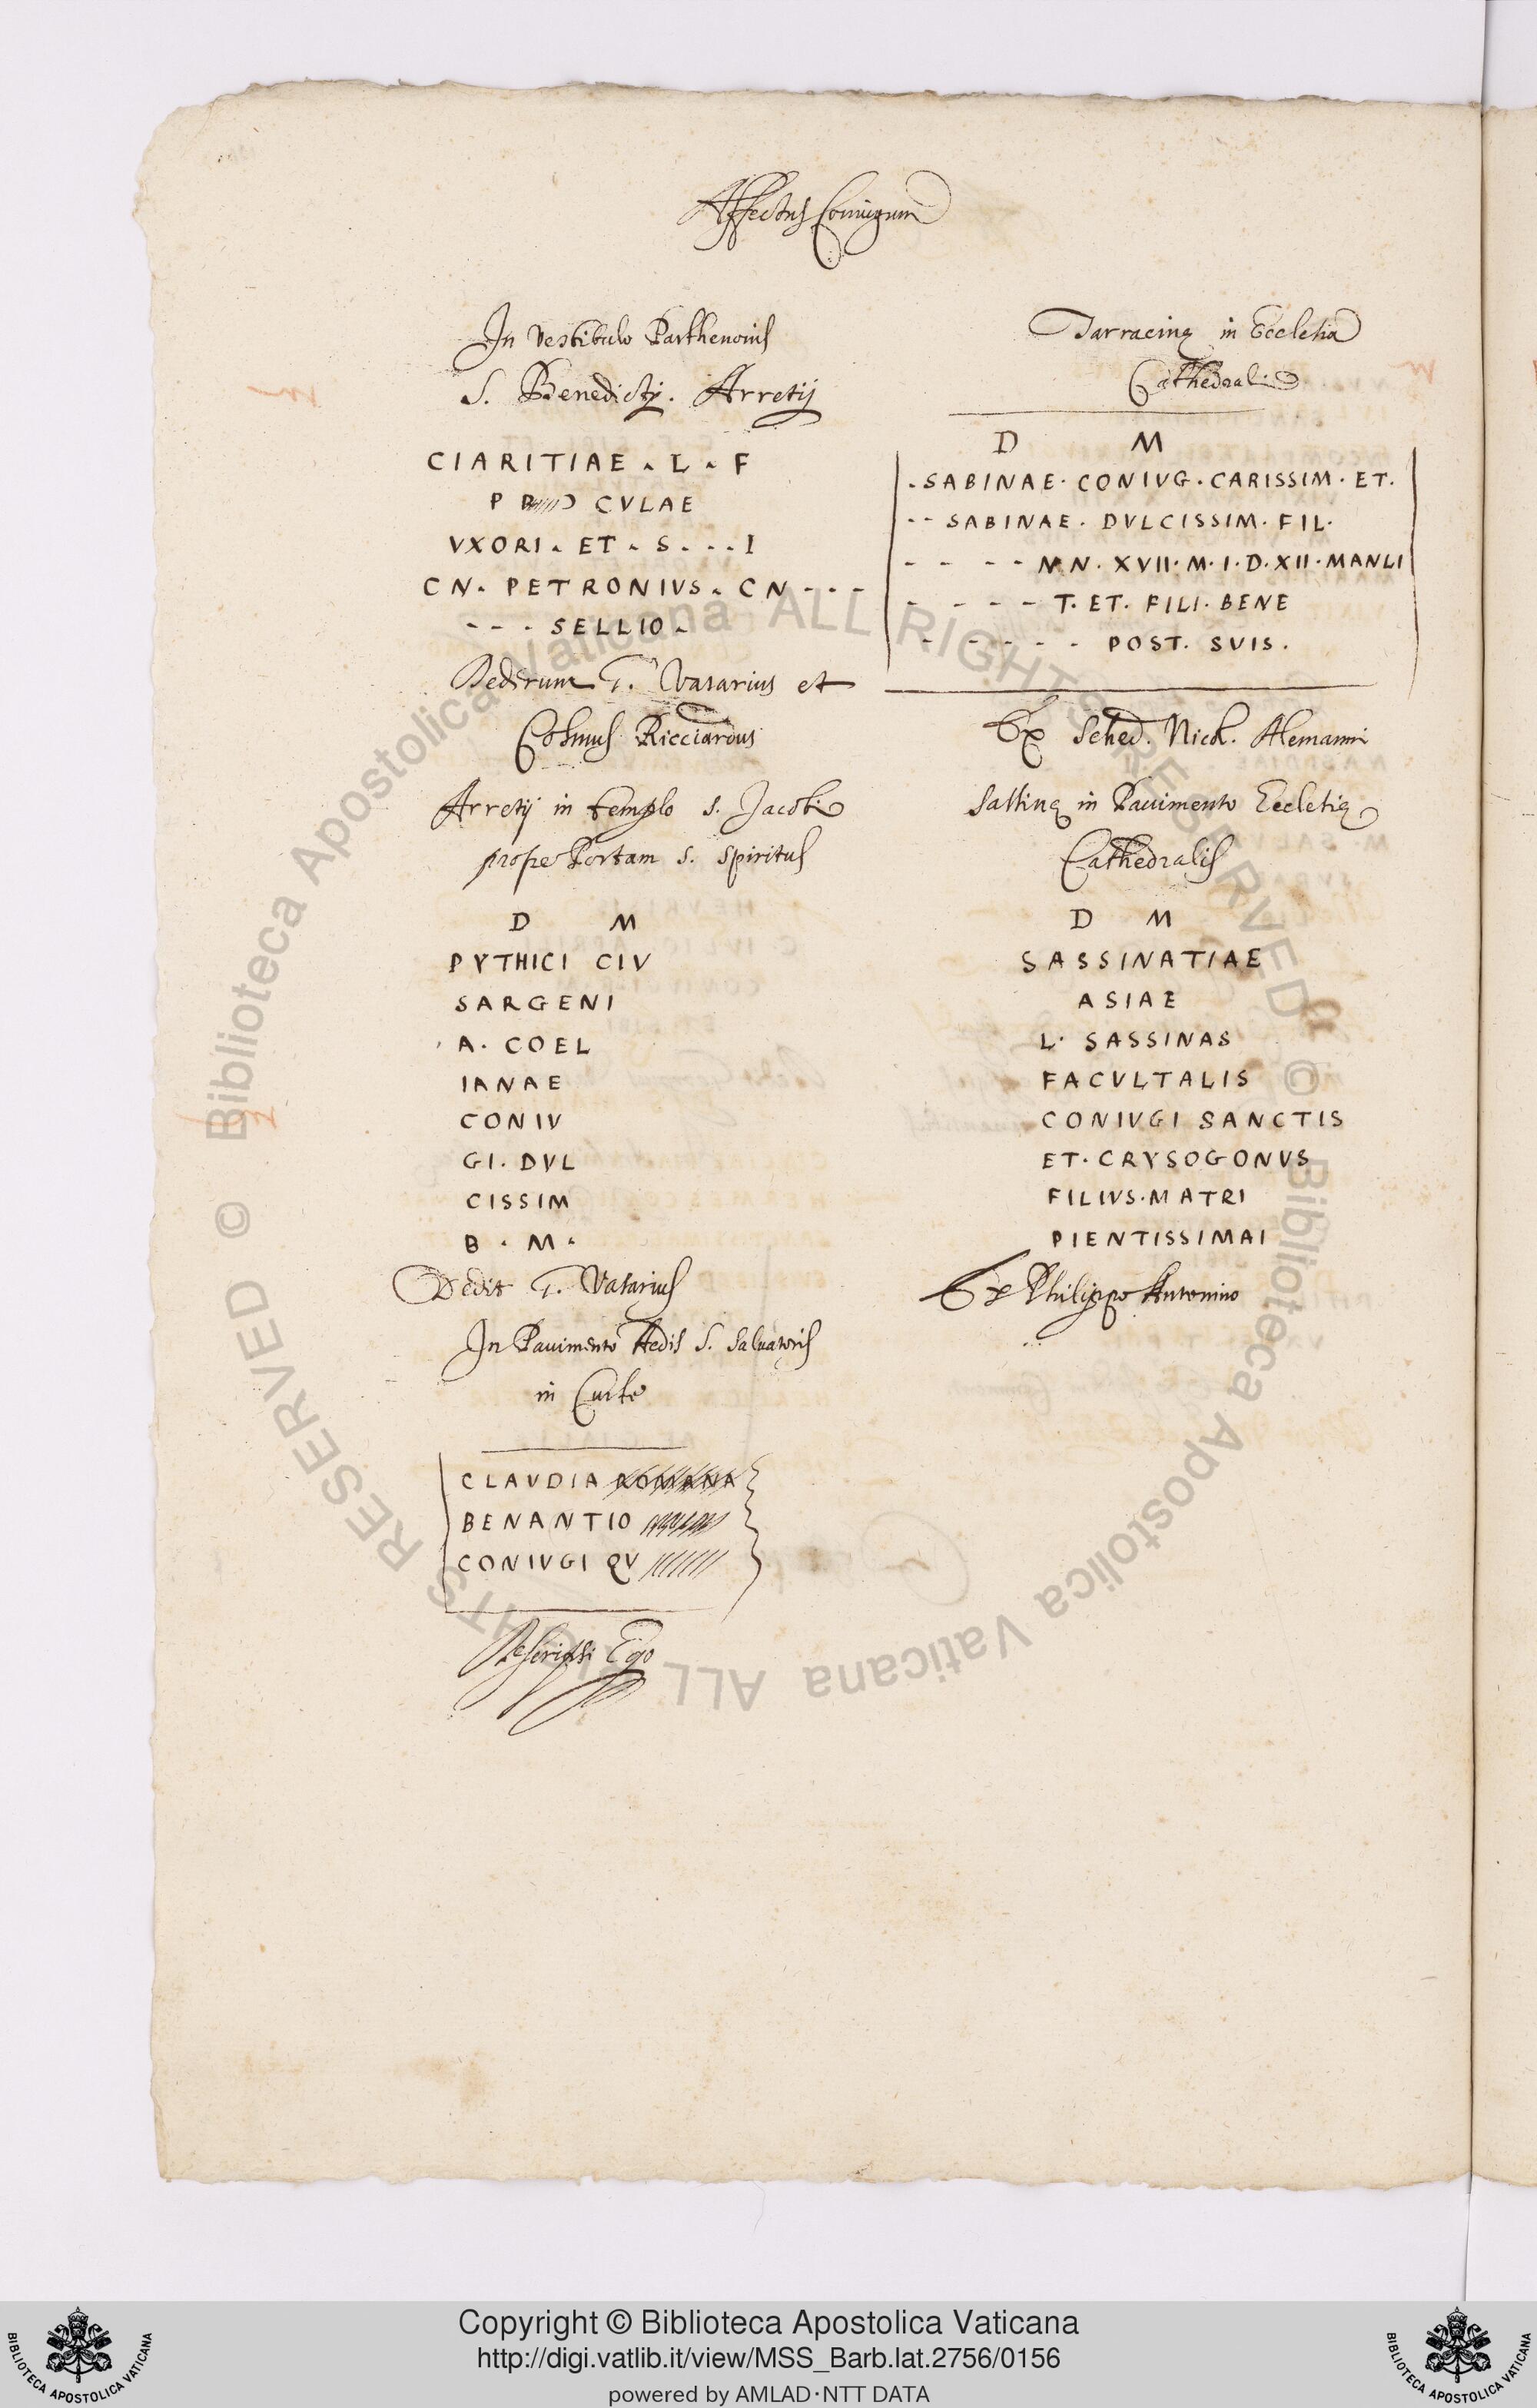 Affectus Coniugum
In Vestibulo Parthenonis
S. Benedicti. Arretij
CIARITIAE . L . F
P B CVLAE
VXORI . ET . S . . . I
CN . PETRONIVS . CN - - -
- - - SELLIO .
Dederunt T. Vasarius et
Cosmus Ricciardus
Arretij in templo S. Jacobi
prope Portam S. Spiritus
D M
PYTHICI CIV
SARGENI
A. COEL
IANAE
CONIV
GI. DVL
CISSIM
B . M .
Dedit T. Vasarius
In Pauimento Aedis S. Saluatoris
in Curte
CLAVDIA ROMANA
BENANTIO
CONIVGI QV
Descripsi Ego
Tarracinę in Ecclesia
Cathedrali
D M
. SABINAE . CONIVG . CARISSIM . ET .
- - SABINAE . DVLCISSIM . FIL .
- - - - N . XVII . M . I . D . XII . MANLI
- - - - T. ET . FILI . BENE
- - - - - POST . SVIS .
Ex Sched. Nich. Alemanni
Sassinę in Pauimento Ecclesię
Cathedralis
D M
SASSINATIAE
ASIAE
L . SASSINAS
FACVLTALIS
CONIVGI SANCTIS
ET . CRYSOGONVS
FILIVS . MATRI
PIENTISSIMAI
Ex Philippo Antonino
© Biblioteca Apostolica Vaticana ALL RIGHTS RESERVED
© Biblioteca Apostolica Vaticana ALL RIGHTS RESERVED
Copyright © Biblioteca Apostolica Vaticana
http://digi.vatlib.it/view/MSS_Barb.lat.2756/0156
powered by AMLAD·NTT DATA
BIBLIOTECA APOSTOLICA VATICANA
BIBLIOTECA APOSTOLICA VATICANA